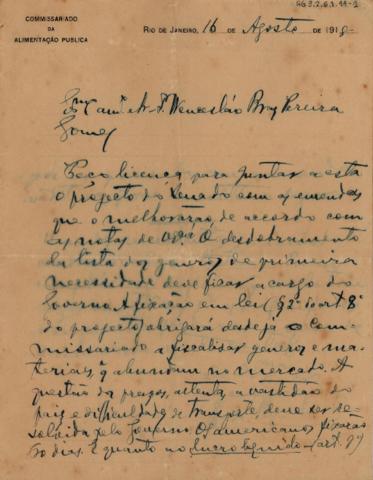 COMMISSARIADO
DA
ALIMENTAÇÃO PUBLICA
RIO DE JANEIRO, 16 DE Agosto DE 1918
Exmo Wenceslão Braz Pereira
Gomes
Peço licença para juntar a esta
o projecto do Senado com as emendas
que o melhorarão de accordo com
as notas de O desdobramento
da lista dos generos de primeira
necessidade deve ficar a cargo do
Governo. A fixação em lei (§ 2º do art. 8º
do projecto) obrigará desde já o Com-
missariado a fiscalisar generos e ma-
teriaes q abundam no mercado. A
questão de prazos, attenta a vastidão do
paiz e difficuldade de transporte, deve ser re-
solvida pelo Governo. Os americanos fixarão
60 dias. E quanto ao lucro liquido (art. 9º)